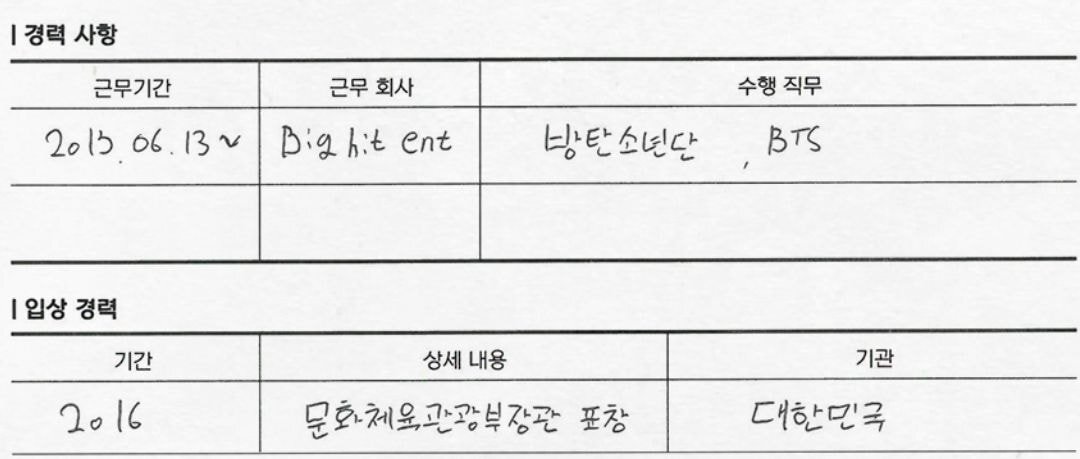 | 경력 사항
근무기간 근무 회사 수행 직무
2013.06.13 ~ Big hit ent 방탄소년단, BTS
| 입상 경력
기간 상세 내용 기관
2016 문화체육관광부장관 표창 대한민국